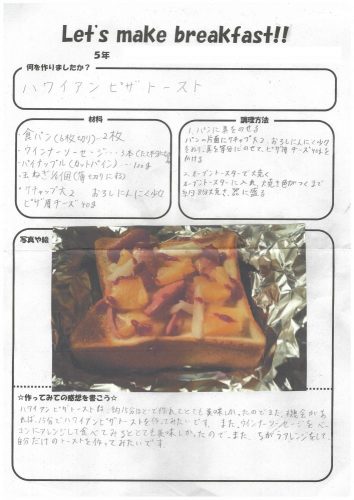 Let's make breakfast!!
5年
何を作りましたか？
ハワイアンピザトースト
材料
・食パン(6枚切り)…2枚
・ウインナーソーセージ…3本
・パイナップル(カットパイン)…100g
・玉ねぎ
・ケチャップ大2 おろしにんにく少々
ピザ用チーズ40g
調理方法
1.パンに具をのせる
パンの片面にケチャップ大2、おろしにんにく少々
をぬり、具を等分にのせて、ピザ用チーズ40gを
かける
2.オーブントースターで焼く
オーブントースターに入れ、焼き色がつくまで
焼き、器に盛る
写真や絵
☆作ってみての感想を書こう☆
ハワイアンピザトーストは、約15分ほどで作れ、とても美味しかったのでまた、機会があ
れば、15分でハワイアンピザトーストを作ってみたいです。また、ウインナーソーセージをベー
コンにアレンジして食べてみるととても美味しかったので、また、ちがうアレンジをして、
自分だけのトーストを作ってみたいです。